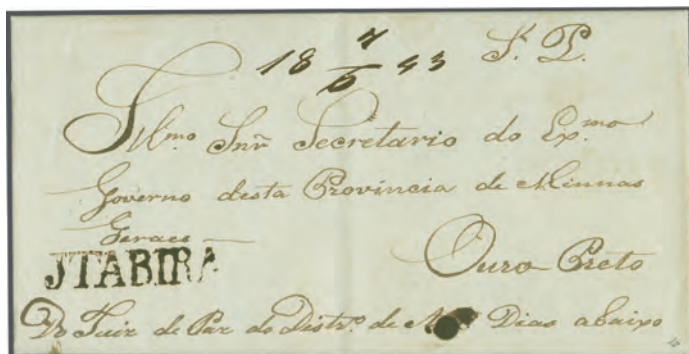 18 7/6 43 S. P.
Illmo Snr Secretario do Ex.mo
Governo desta Provincia de Minnas
Geraes
JTABIRA
Ouro Preto
Do Juiz de Paz do Distr.o de Dias abaixo